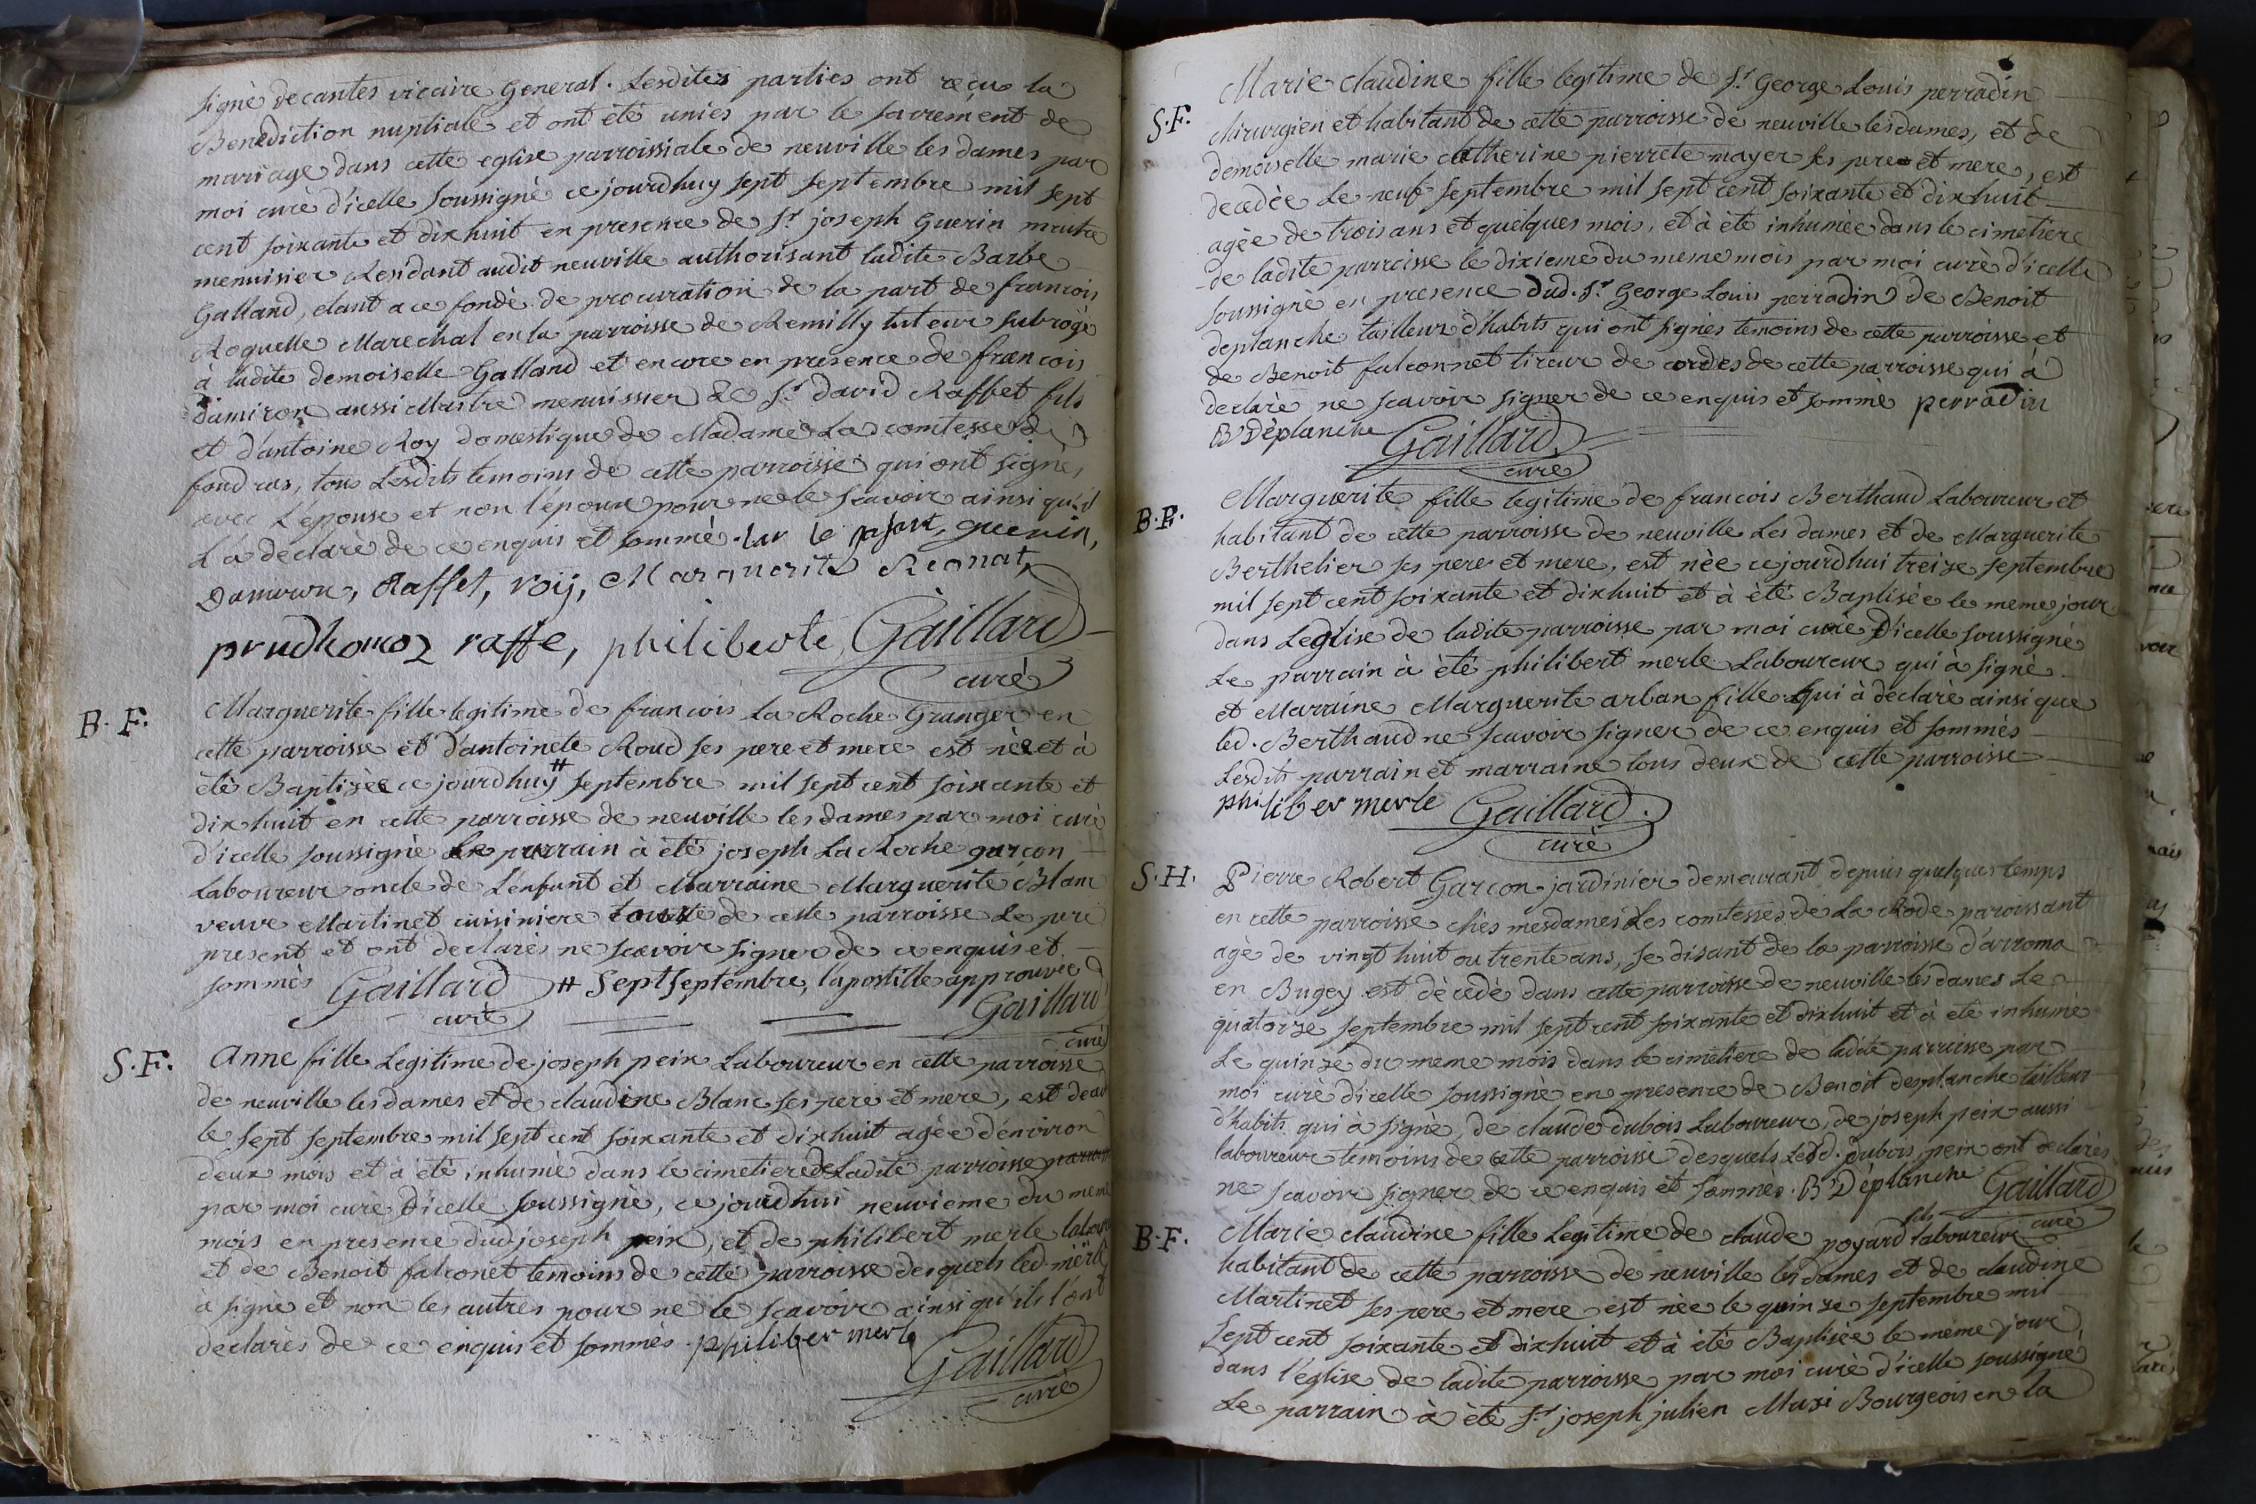 signè decantes vicaire General. Lesdites parties ont reçu la
Benediction nuptiale et ont étè unies par le sacrement de
mariage dans cette eglise parroissiale de neuville les dames par
moi curè d'icelle soussignè ce jourdhuy sept septembre mil sept
cent soixante et dixhuit en presence de Sr joseph Guerin maitre
menuisier Residant audit neuville authorisant ladite Barbe
Galland, etant a ce fondè de procuration de la part de francois
Roguelle Marechal en la parroisse de Remilly tuteur subrogè
à ladite demoiselle Galland et encore en presence de francois
Damiron aussi Maitre menuisier de Sr David Raffet fils
et d'antoine Roy domestique de Madame La comtesse de
foudras, tous Lesdits temoins de cette parroisse qui ont signès
avec L'epouse et non l'epoux pour ne le scavoir ainsi qu'il
L'a declarè de ce enquis et sommè. guerin,
Damiron, Raffet, roy, Marguerite Regnat,
prudhomoz raffe, philiberte Gaillard
curè
B. F. Marguerite fille legitime de francois La Roche Granger en
cette parroisse et d'antoinete Roud ses pere et mere est nèe et à
étè Baptisèe ce jourdhuy # septembre mil sept cent soixante et
dixhuit en cette parroisse de neuville les dames par moi curè
d'icelle soussignè Le parrain à étè joseph La Roche garcon
Laboureur oncle de L'enfant et Marraine Marguerite Blanc
veuve Martinet cuisiniere de cette parroisse Le pere
present et ont declarès ne scavoir signer de ce enquis et
sommès Gaillard # Sept septembre, lapostille approuvèe
curè Gaillard
curè
S. F. Anne fille Legitime de joseph peix Laboureur en cette parroisse
de neuville les dames et de claudine Blanc ses pere et mere, est
le sept septembre mil sept cent soixante et dixhuit agèe d'environ
deux mois et à étè inhumèe dans le cimetiere de Ladite parroisse
par moi curè d'icelle soussignè, ce jourdhui neuvieme du meme
mois en presence dud. joseph peix, et de philibert merle
et de Benoit falconet temoins de cette parroisse desquels led. merle
à signè et non les autres pour ne le scavoir ainsi qu'ils l'ont
declarès de ce enquis et sommès. philiber merle
Gaillard
curè
S. F. Marie claudine fille legitime de Sr George Louis perradin
chirurgien et habitant de cette parroisse de neuville les dames, et de
demoiselle marie catherine pierrete mayer ses pere et mere, est
decedèe Le neuf septembre mil sept cent soixante et dixhuit
agèe de trois ans et quelques mois, et à étè inhumèe dans le cimetiere
de ladite parroisse le dixieme du meme mois par moi curè d'icelle
soussignè en presence Dud. Sr George Louis perradin de Benoit
deplanche tailleur d'habits qui ont signès temoins de cette parroisse et
de Benoit falconnet tireur de cordes de cette parroisse qui à
declarè ne scavoir signer de ce enquis et sommè perradin
B Déplanche Gaillard
curè
B. F. Marguerite fille legitime de francois Berthaud Laboureur et
habitant de cette parroisse de neuville Les dames et de Marguerite
Berthelier ses pere et mere, est nèe ce jourdhui treize septembre
mil sept cent soixante et dixhuit et à étè Baptisèe le meme jour
dans Leglise de ladite parroisse par moi curè Dicelle soussignè
Le parrain à étè philibert merle Laboureur qui à signè
et Marraine Marguerite arban fille qui à declarè ainsi que
led. Berthaud ne scavoir signer de ce enquis et sommès
Lesdits parrain et marraine tous deux de cette parroisse
philiber merle Gaillard
curè
S. H. Pierre Robert Garcon jardinier demeurant depuis quelques temps
en cette parroisse chès mesdames Les comtesses de La Rode paroissant
agè de vingt huit ou trente ans, se disant de la parroisse d'arroma
en Bugey est dècedè dans cette parroisse de neuville les dames Le
quatorze septembre mil sept cent soixante et dixhuit et à étè inhumè
Le quinze du meme mois dans le cimetiere de ladite parroisse par
moi curè dicelle soussignè en presence de Benoit desplanche tailleur
d'habits qui à signè, de claude dubois Laboureur, de joseph peix aussi
laboureur temoins de cette parroisse desquels Lesd. dubois, peix ont declarès
ne scavoir signer de ce enquis et sommès. B Déplanche Gaillard
curè
B. F. Marie claudine fille Legitime de claude poyard fils laboureur
habitant de cette parroisse de neuville les dames et de claudine
Martinet ses pere et mere est nèe le quinze septembre mil
sept cent soixante et dixhuit et à étè Baptisèe le meme jour
dans l'église de ladite parroisse par moi curè d'icelle soussignè
Le parrain à étè Sr joseph julien Muzi Bourgeois en la